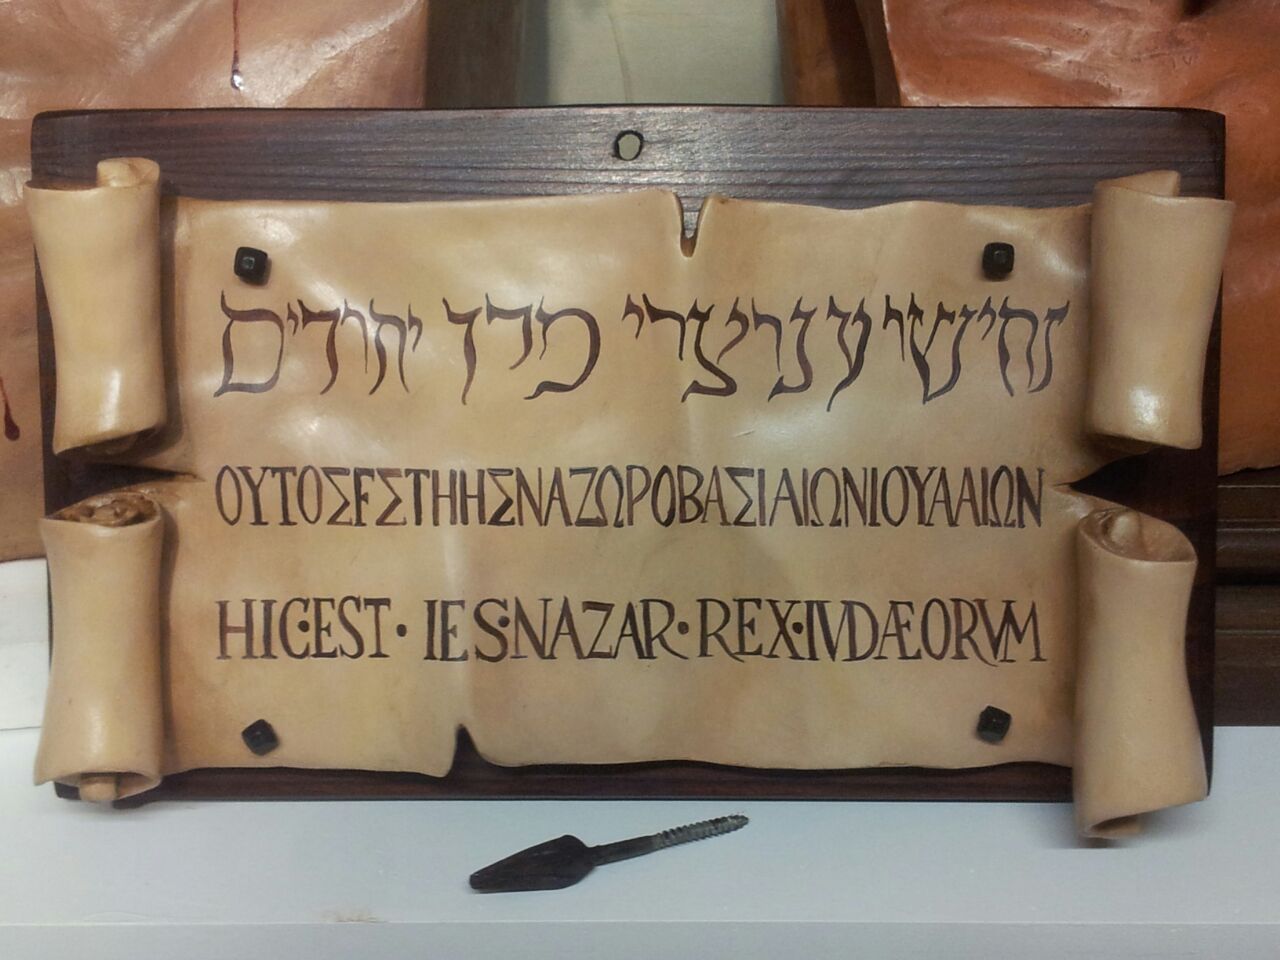 זחישי ענריצרי מרך יהודים
ΟΥΤΟΣFΣΤΗΗΣΝΑΖΩΡΟΒΑΣΙΑΙΩΝΙΟΥΑΑΙΩΝ
HIC·EST·IES·NAZAR·REX·IVDÆORVM